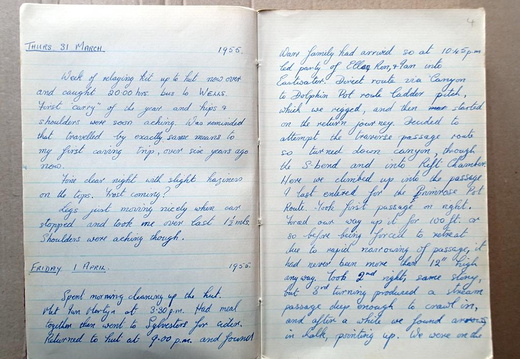 THURS. 31 MARCH. 1955.
Week of relaying kit up to hut now over
and caught 2000 hrs bus to WELLS.
"First carry" of the year and hips &
shoulders were soon aching. Was reminded
that travelled by exactly same means to
my first caving trip, over six years ago
now.
Fine clear night with slight haziness
on the tops. Frost coming?
Legs just moving nicely when car
stopped and took me over last 1½ mile.
Shoulders were aching though.
FRIDAY 1 APRIL. 1955.
Spent morning cleaning up the hut.
Met at 3.30 pm. Had meal
together then went to Sylvesters for cider.
Returned to hut at 9.00 pm. and found
4
family had arrived so at 10:45pm
led party of Ken, & Ian into
Eastwater. Direct route via Canyon
to Dolphin Pot route ladder pitch,
which we rigged, and then started
on the return journey. Decided to
attempt the traverse passage route
so turned down Canyon, through
the S-bend and into Rift Chamber.
Here we climbed up into the passage
I last entered for the Primrose Pot
Route. Took first passage on right.
Forced our way up it for 100 ft. or
so before being forced to retreat
due to rapid narrowing of passage, it
had never been more than 12" high
anyway. Took 2nd right, same story,
but 3rd turning produced a stream
passage deep enough to crawl in,
and after a while we found arrows
in chalk, pointing up. We were on the